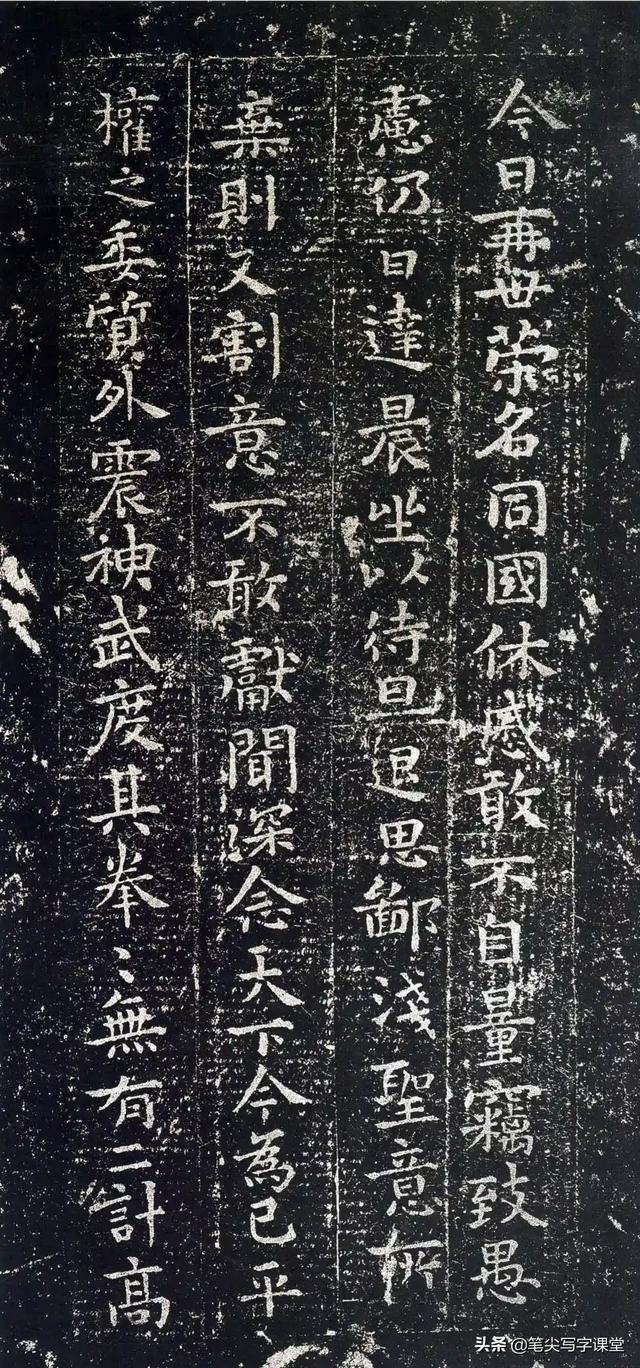 今日再世荣名同國休慼敢不自量竊致愚
慮仍日達晨坐以待旦退思鄙淺聖意所
棄則又割意不敢獻聞深念天下今為已平
權之委質外震神武度其拳〻無有二計高
头条 @笔尖写字课堂